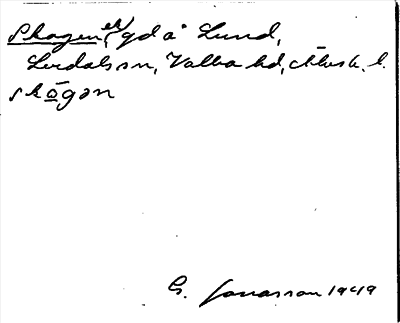 Skogen, el. gd å Lund,
Lerdals sn, Valbo hd, Älvsb. l.
skógən
G. Jonasson 1949